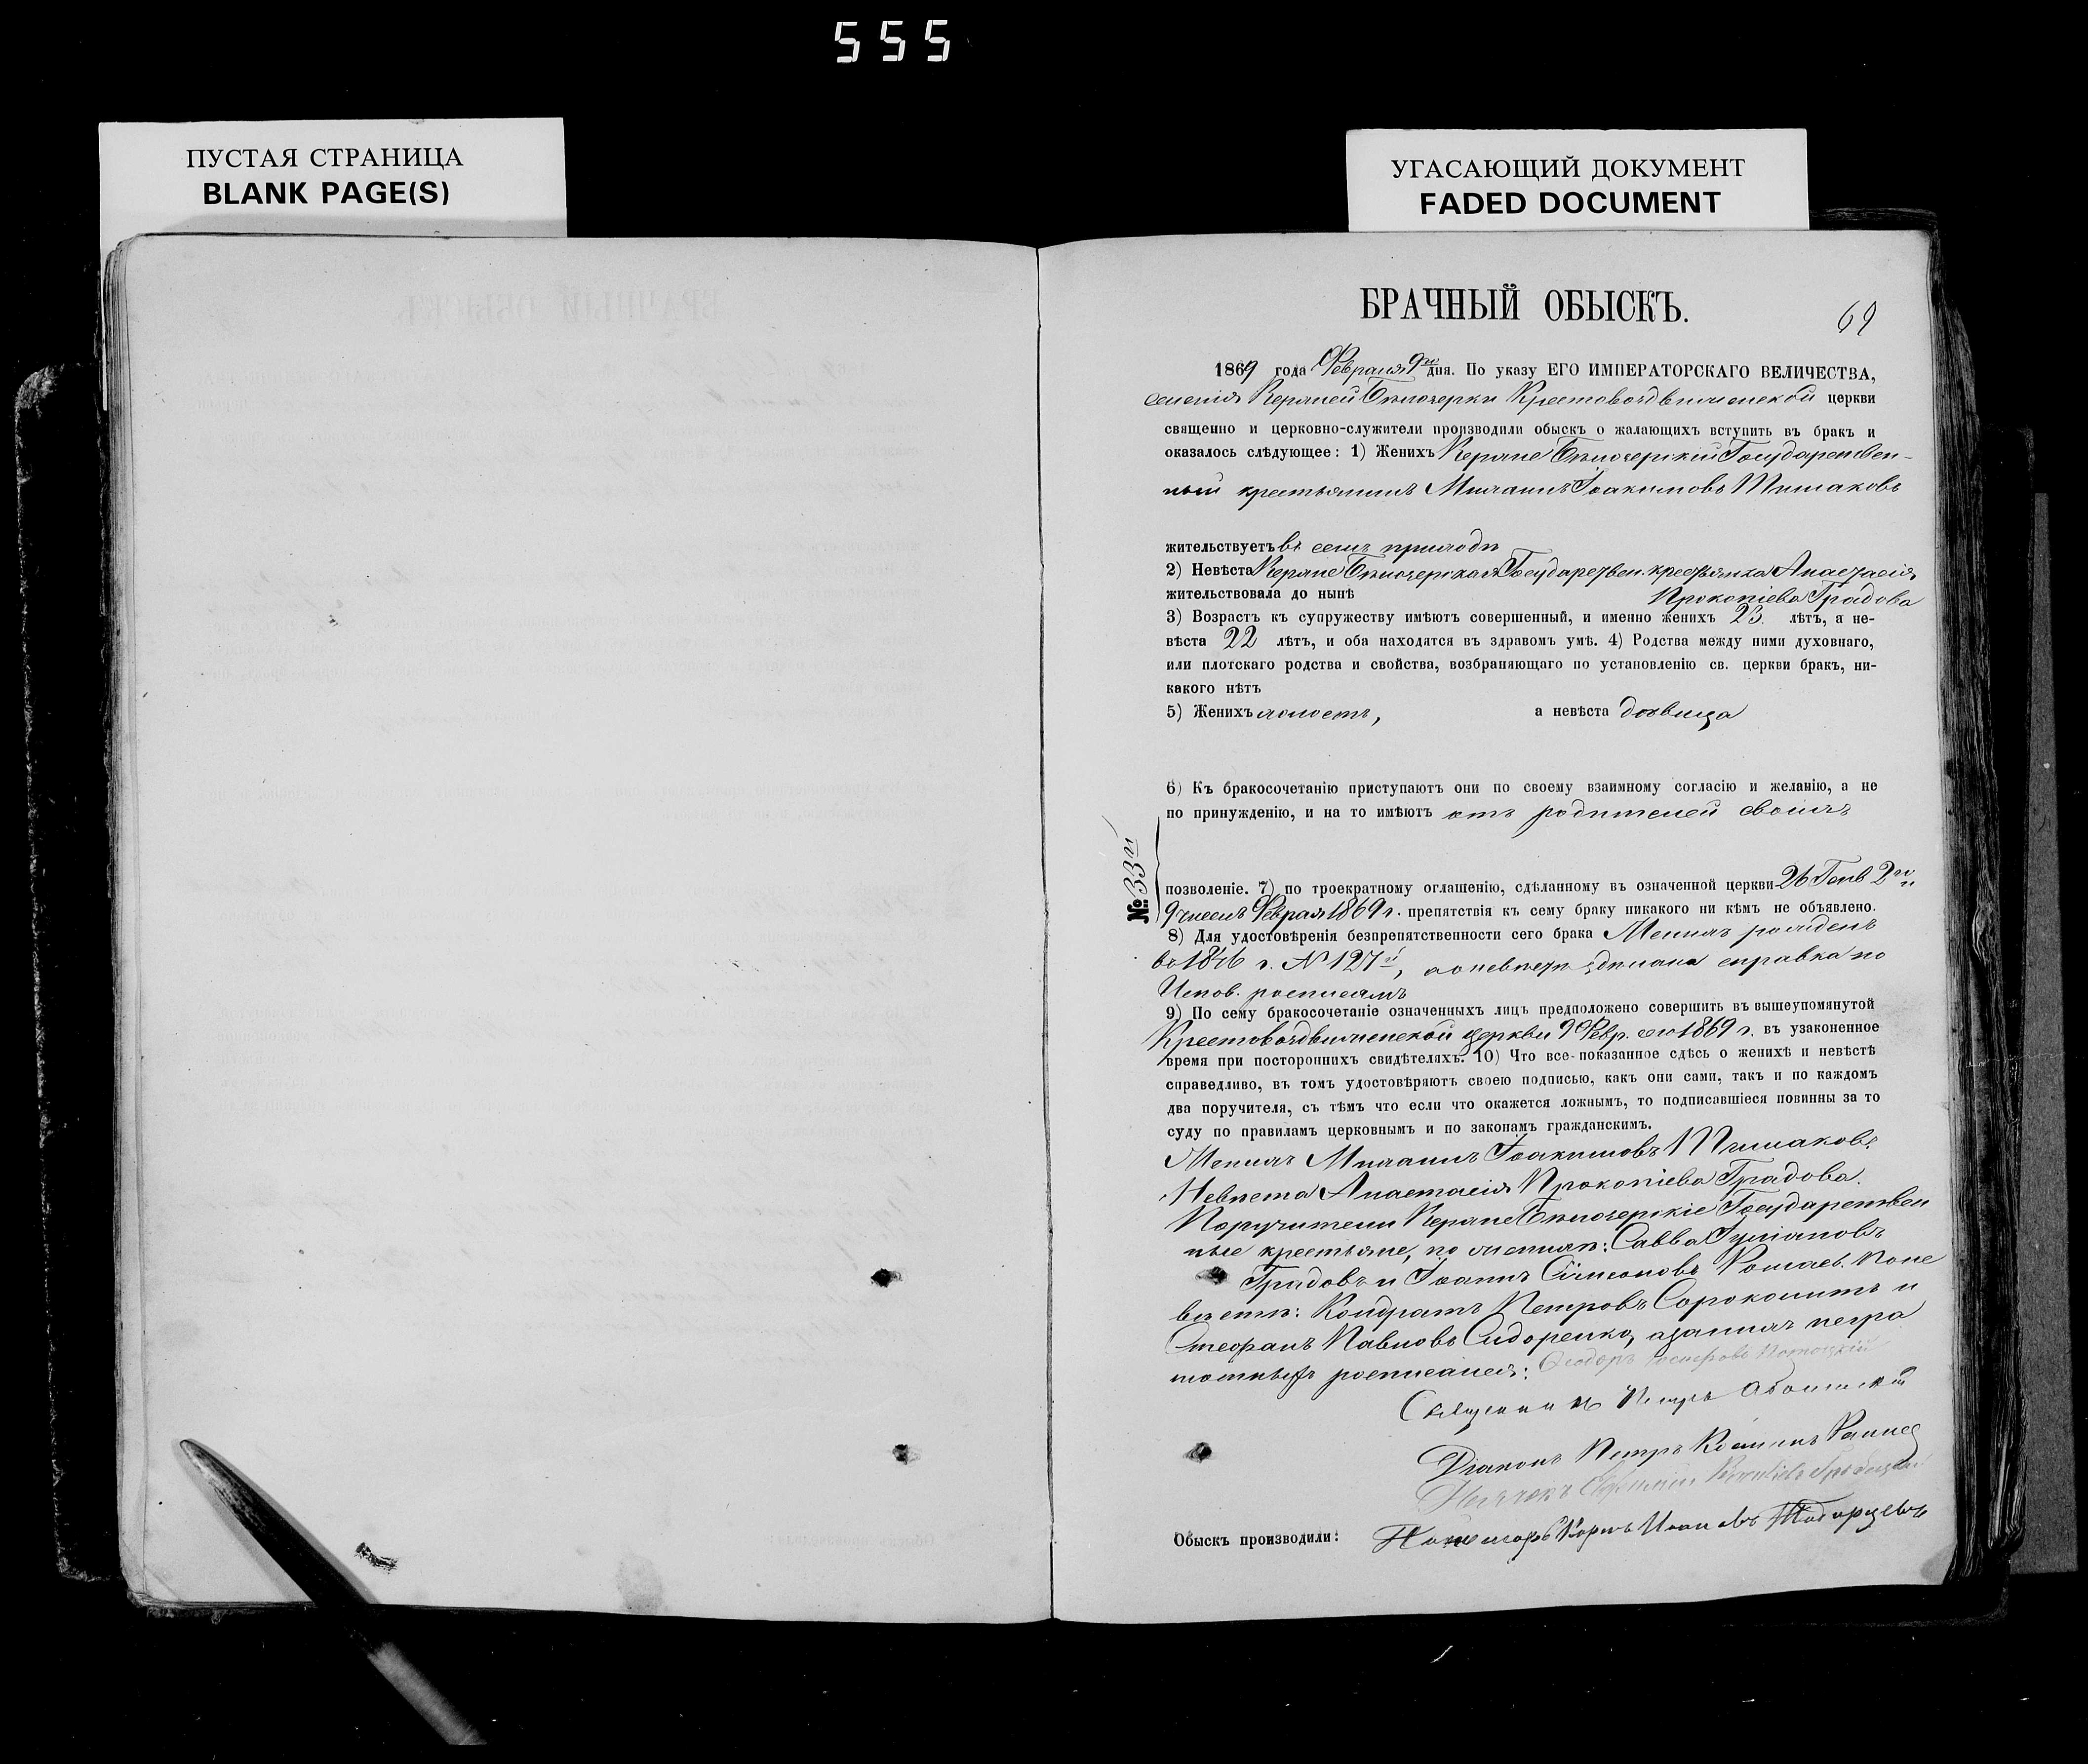 555
ПУСТАЯ СТРАНИЦА
BLANK PAGE(S)
УГАСАЮЩИЙ ДОКУМЕНТ
FADED DOCUMENT
БРАЧНЫЙ ОБЫСКЪ.
69
1869 года Февраля 9го дня. По указу ЕГО ИМПЕРАТОРСКАГО ВЕЛИЧЕСТВА,
селенія Керменчи Бѣлозерки Крестовоздвиженской церкви
священно и церковно-служители производили обыскъ о жалающихъ вступить въ бракъ и
оказалось слѣдующее: 1) Женихъ Бѣлозерскій Государствен-
ный крестьянинъ Михаилъ Іоакимовъ
жительствуетъ въ семъ приходѣ
2) Невѣста Бѣлозерская Государствен. крестьянка Анастасія
жительствовала до нынѣ Прокопіева Градова
3) Возрастъ къ супружеству имѣютъ совершенный, и именно женихъ 23. лѣтъ, а не-
вѣста 22 лѣтъ, и оба находятся въ здравомъ умѣ. 4) Родства между ними духовнаго,
или плотскаго родства и свойства, возбраняющаго по установленію св. церкви бракъ, ни-
какого нѣтъ
5) Женихъ холостъ, а невѣста дѣвица
6) Къ бракосочетанію приступаютъ они по своему взаимному согласію и желанію, а не
по принужденію, и на то имѣютъ отъ родителей своихъ
№ 33й
позволеніе. 7) по троекратному оглашенію, сдѣланному въ означенной церкви 26 Генв 2го и
9 чиселъ Февраля 1869 г. препятствія къ сему браку никакого ни кѣмъ не объявлено.
8) Для удостовѣренія безпрепятственности сего брака Женихъ рожденъ
въ 1846 г. № 127й, а о невѣстѣ сдѣлана справка по
Испов. росписямъ
9) По сему бракосочетаніе означенныхъ лицъ предположено совершить въ вышеупомянутой
Крестовоздвиженской церкви 9 Февр. сего 1869 г. въ узаконенное
время при постороннихъ свидѣтеляхъ. 10) Что все показанное сдѣсь о женихѣ и невѣстѣ
справедливо, въ томъ удостовѣряютъ своею подписью, какъ они сами, такъ и по каждомъ
два поручителя, съ тѣмъ что если что окажется ложнымъ, то подписавшіеся повинны за то
суду по правиламъ церковнымъ и по законамъ гражданскимъ.
Женихъ Михаилъ Іоакимовъ
Невѣста Анастасія Прокопіева Градова.
Поручители Бѣлозерскіе Государствен
ные крестьяне, по женихѣ: Савва
Градовъ и Іоаннъ Сімеоновъ По не
вѣстѣ: Кондратъ Петровъ Сороколитъ и
Стефанъ Павловъ Сидоренко, а за нихъ негра
мотныхъ росписался: Ѳеодоръ
Священникъ Петръ
Діаконъ Петръ Косминъ
Обыскъ производили: Пономарь Ивановъ